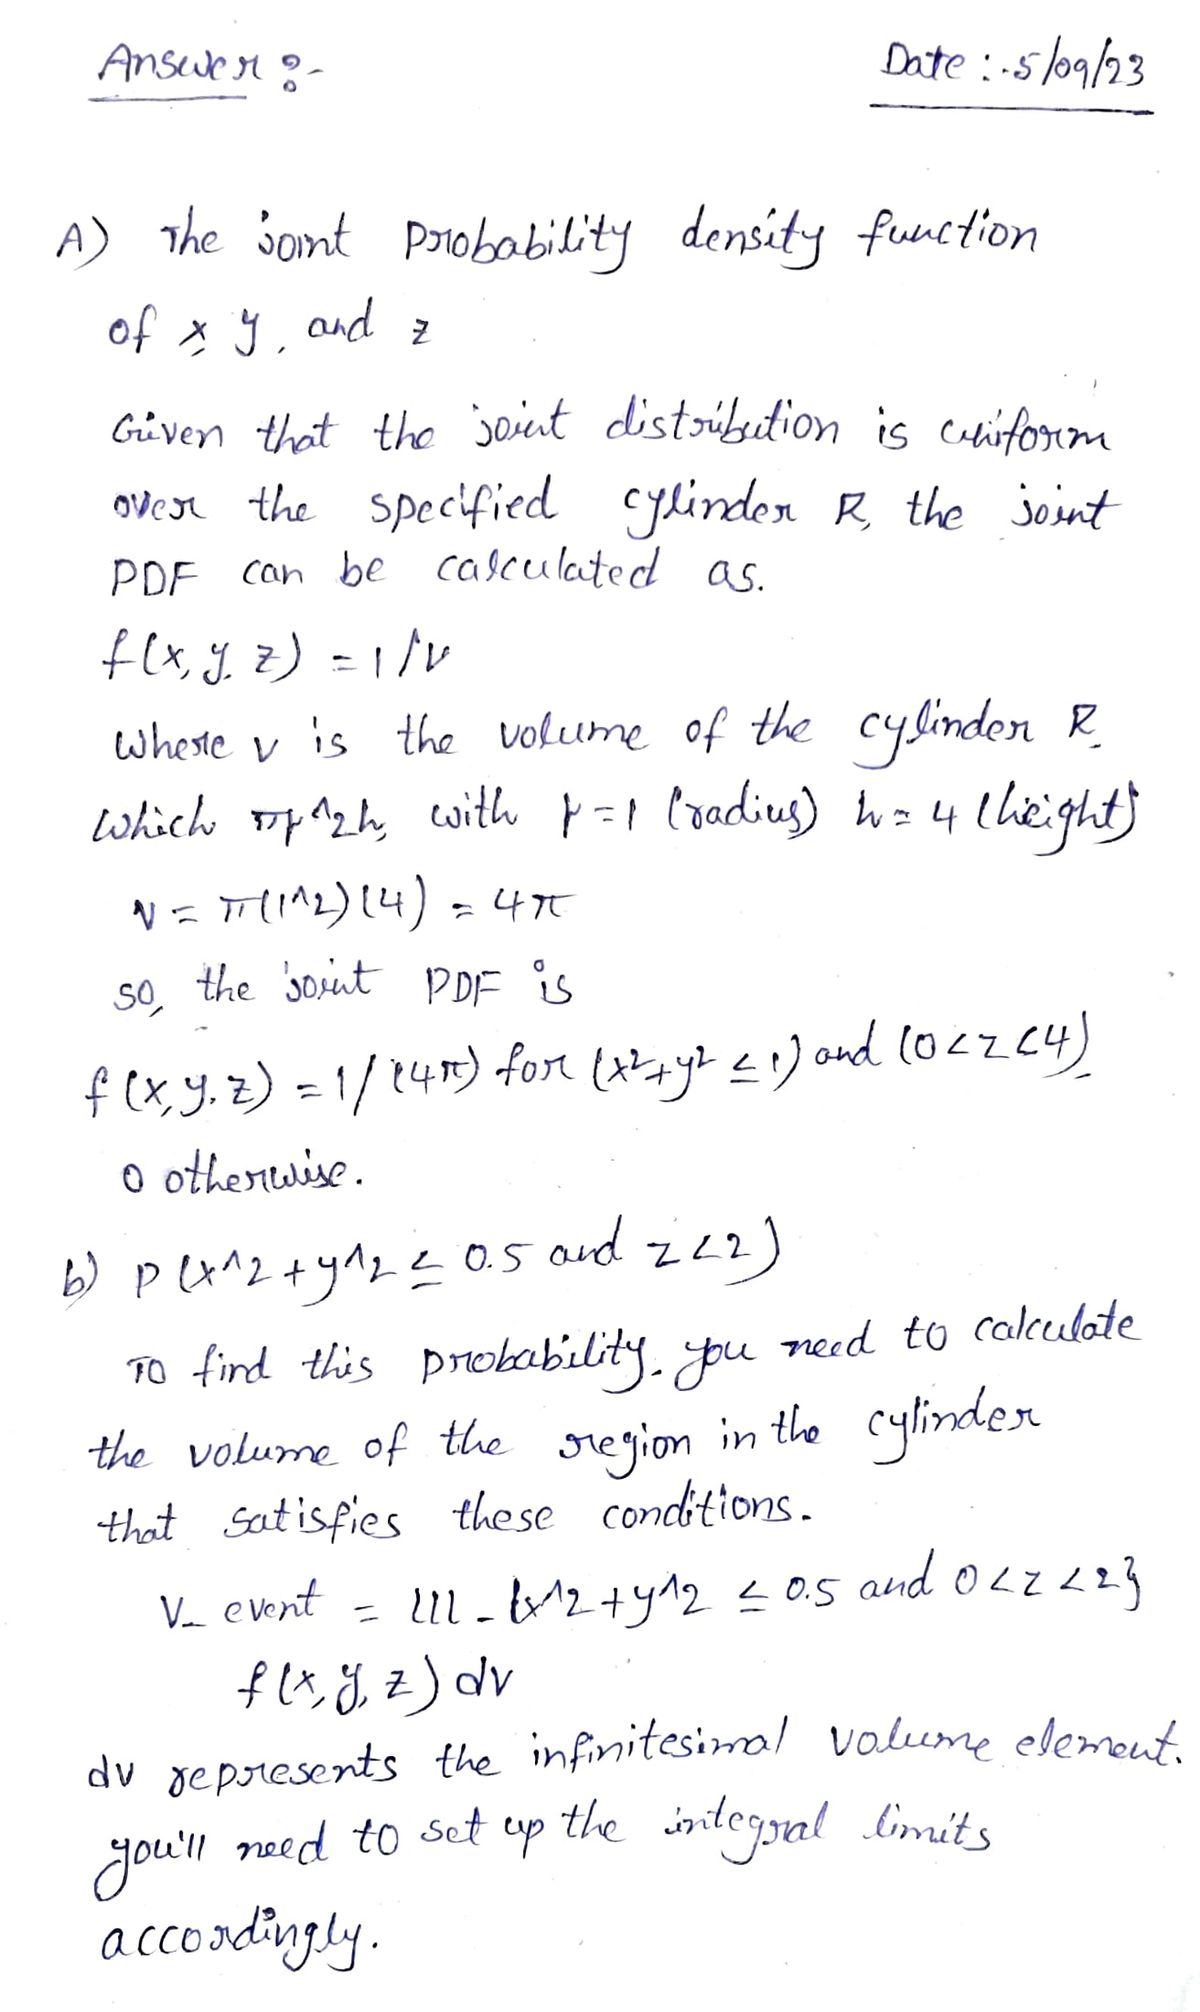 Answer :-
Date :- 5/09/23
A) The joint Probability density function
of x, y, and z
Given that the joint distribution is uniform
over the specified cylinder R, the joint
PDF can be calculated as.
f(x, y, z) = 1/v
Where v is the volume of the cylinder R.
Which πr^2h, with r=1 (radius) h=4 (height)
V = π(1^2)(4) = 4π
so, the joint PDF is
f(x, y, z) = 1/(4π) for (x²+y² ≤ 1) and (0<z<4)
0 otherwise.
b) P(x^2+y^2 ≤ 0.5 and z<2)
To find this probability. you need to calculate
the volume of the region in the cylinder
that satisfies these conditions.
V_event = ∫∫∫_{x^2+y^2 ≤ 0.5 and 0<z<2}
f(x, y, z) dv
dv represents the infinitesimal volume element.
you'll need to set up the integral limits
accordingly.